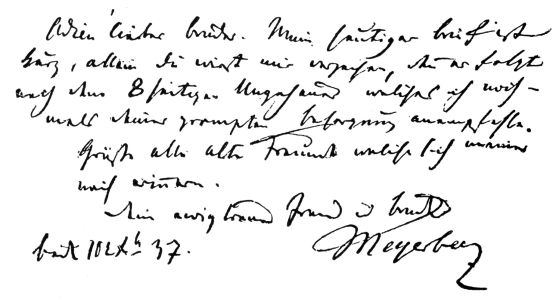 Adieu lieber bruder. Mein heutiger brief ist
kurz, allein du wirst mir verzeihen, da er folgt
nach dem 8seitigen Ungeheuer welches ich noch-
mals deiner prompten besorgung anempfehle.
Grüße alle alte Freunde welche sich meiner
noch erinnern.
Dein ewig treuer freund & bruder
Meyerbeer
37.